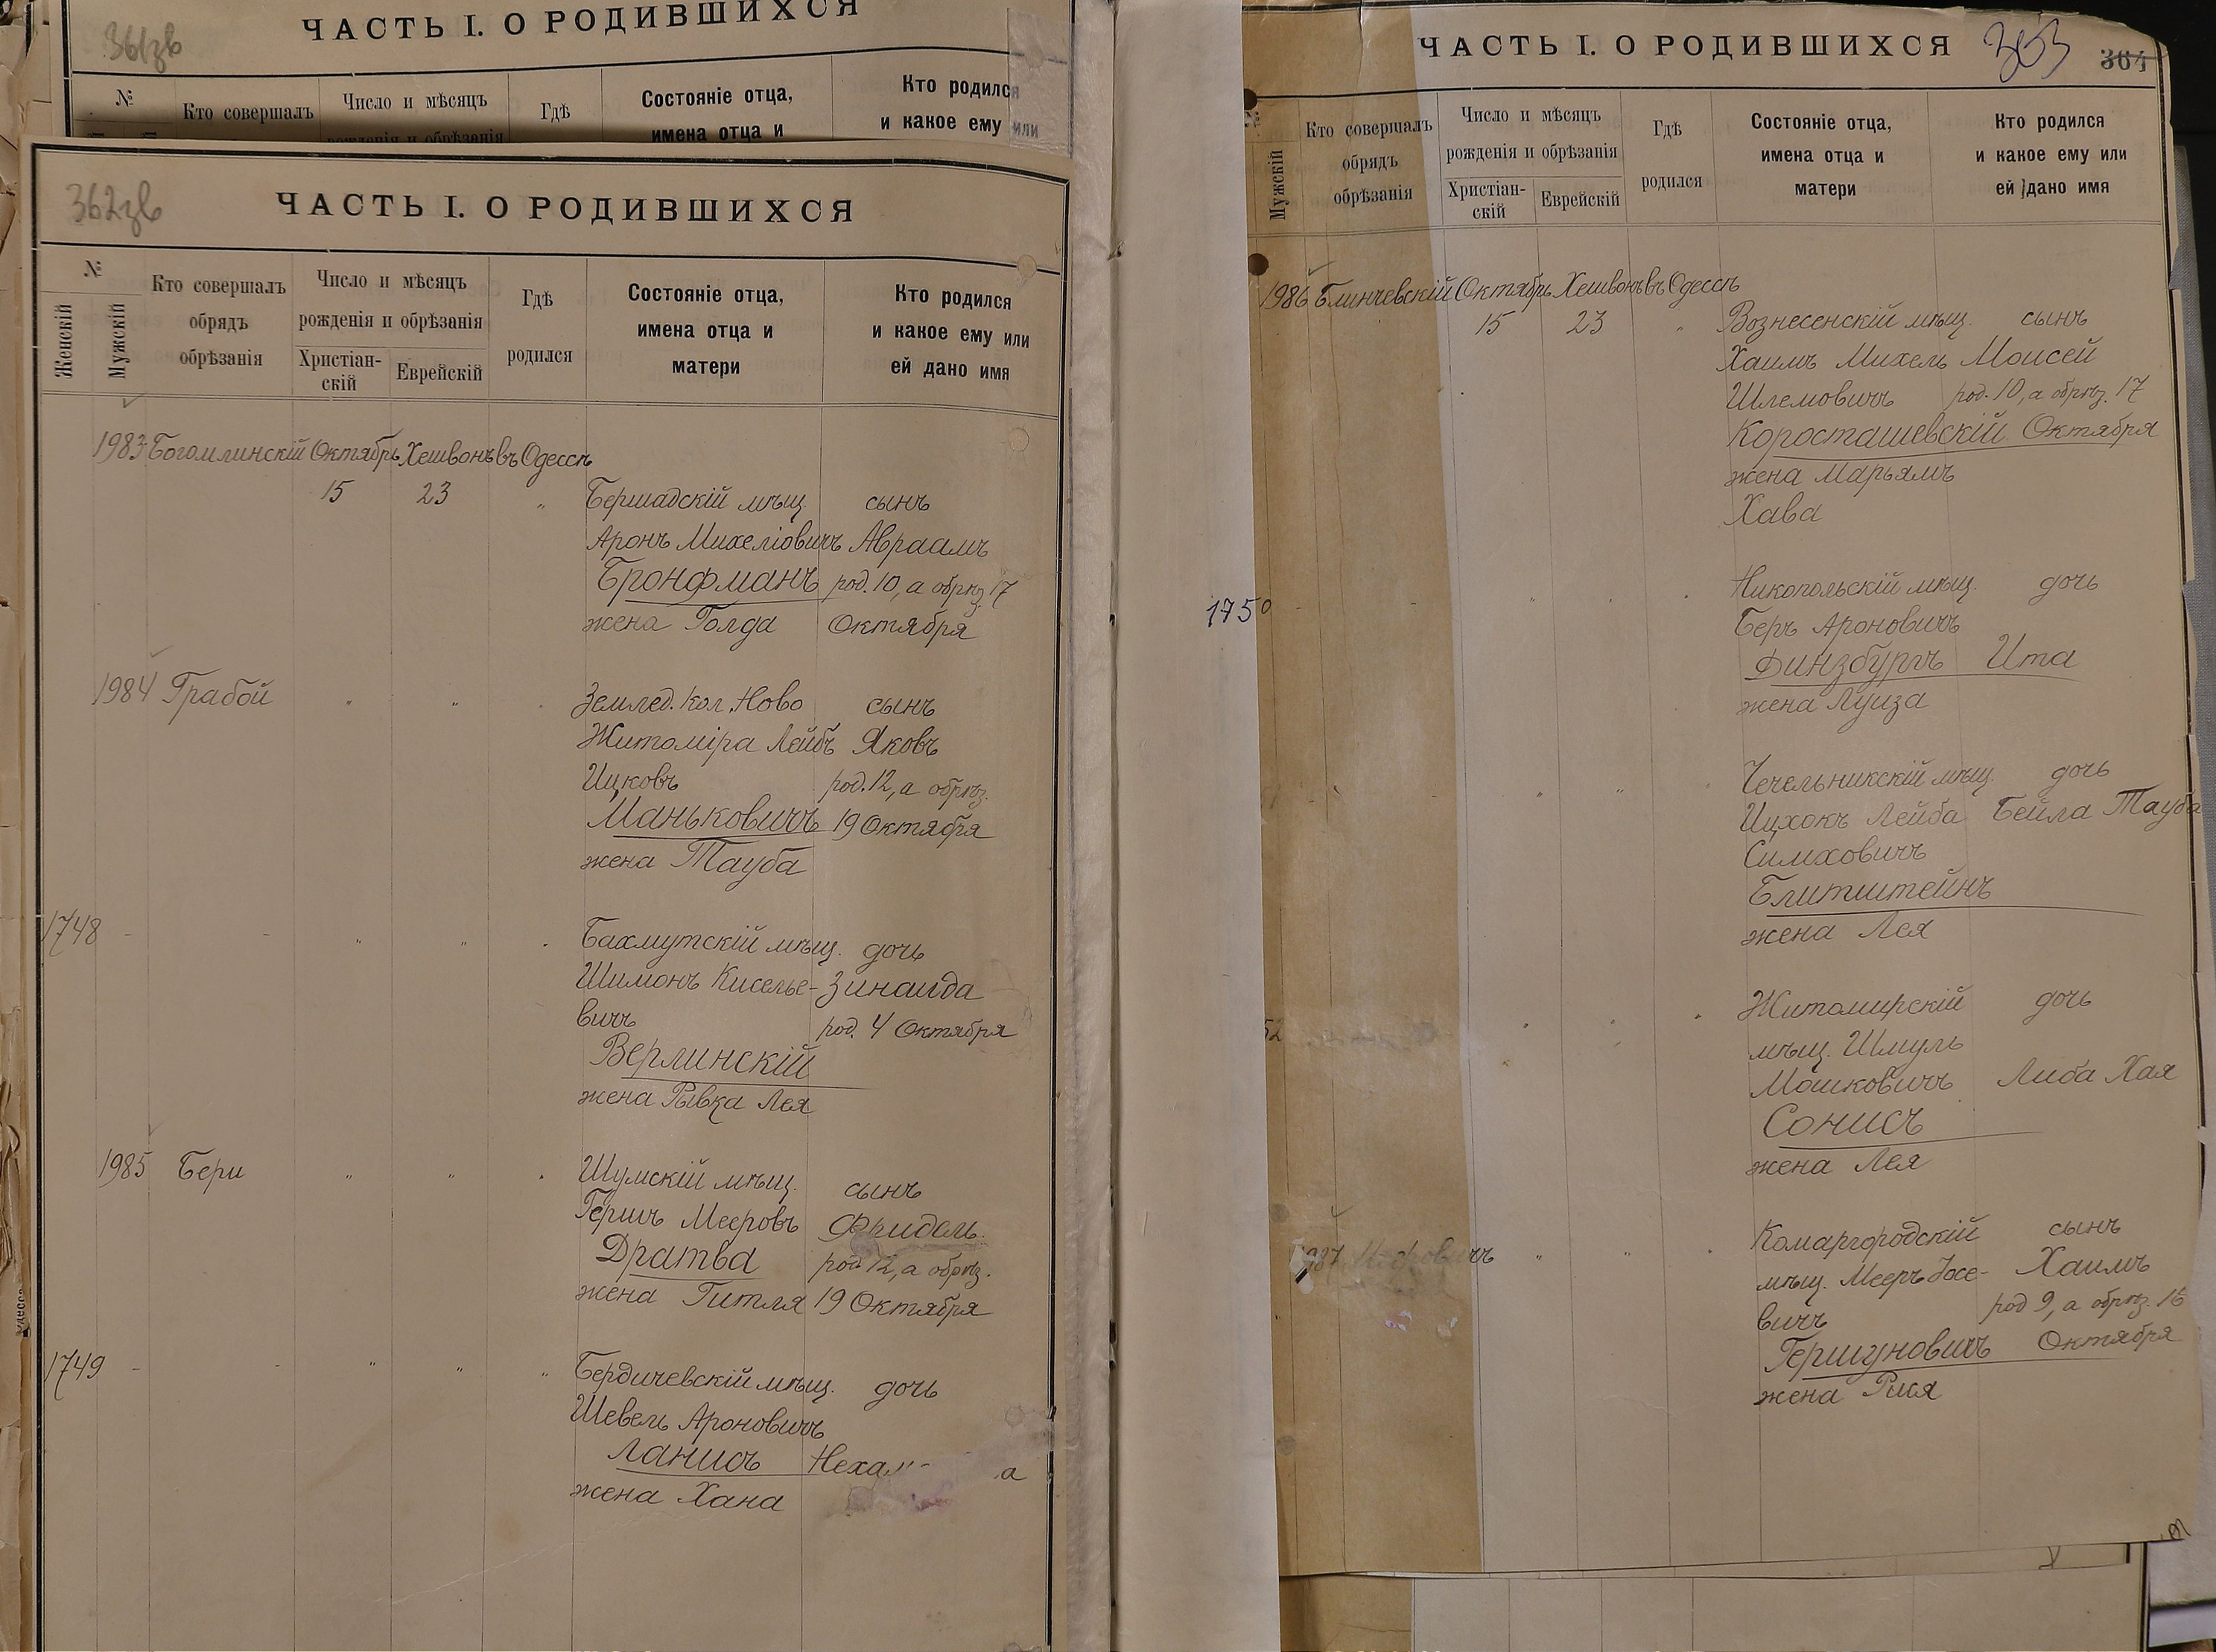 361зв
ЧАСТЬ I. О РОДИВШИХСЯ
№
Кто совершалъ
Число и мѣсяцъ
рожденія и обрѣзанія
Гдѣ
Состояніе отца,
имена отца и
Кто родился
и какое ему или
362зв
ЧАСТЬ I. О РОДИВШИХСЯ
№
Женскій
Мужскій
Кто совершалъ
обрядъ
обрѣзанія
Число и мѣсяцъ
рожденія и обрѣзанія
Христіан-
скій
Еврейскій
Гдѣ
родился
Состояніе отца,
имена отца и
матери
Кто родился
и какое ему или
ей дано имя
1983 Богомлинскій Октябрь Хешвонъ въ Одессѣ
15 23 „ Бершадскій мѣщ. сынъ
Аронъ Михеліовичъ Авраамъ
Бронфманъ род. 10, а обрѣз. 17
жена Голда Октября
1984 Грабой „ „ Землед. кол. Ново сынъ
Житоміра Лейбъ Яковъ
Ицковъ род. 12, а обрѣз.
Маньковичъ 19 Октября
жена Тауба
1748 - - „ „ Бахмутскій мѣщ. дочь
Шимонъ Киселье- Зинаида
вичъ род. 4 Октября
Верлинскій
жена Рывка Лея
1985 Бери „ „ Шумскій мѣщ. сынъ
Гершъ Мееровъ Фридель
Дратва род. 12, а обрѣз.
жена Гитля 19 Октября
1749 - - „ „ „ Бердичевскій мѣщ. дочь
Шевель Ароновичъ
Ланисъ
жена Хана
ЧАСТЬ I. О РОДИВШИХСЯ
363
364
Мужскій
Кто совершалъ
обрядъ
обрѣзанія
Число и мѣсяцъ
рожденія и обрѣзанія
Христіан-
скій
Еврейскій
Гдѣ
родился
Состояніе отца,
имена отца и
матери
Кто родился
и какое ему или
ей дано имя
1986 Блинчевскій Октябрь Хешвонъ въ Одессѣ
15 23 „ Вознесенскій мѣщ. сынъ
Хаимъ Михель Моисей
Шлемовичъ род. 10, а обрѣз. 17
Коросташевскій Октября
жена Марьямъ
Хава
1750 - „ Никопольскій мѣщ. дочь
Беръ Ароновичъ
Финзбургъ Ита
жена Луиза
„ „ Чечельникскій мѣщ. дочь
Ицхокъ Лейба Бейла Тауба
Симховичъ
Блитштейнъ
жена Лея
52 Житомирскій дочь
мѣщ. Шмуль
Мошковичъ Либа Хая
Сонисъ
жена Лея
1987 „ „ Комаргородскій сынъ
мѣщ. Мееръ Іосе- Хаимъ
вичъ род 9, а обрѣз. 16
Гершуновичъ Октября
жена Рися